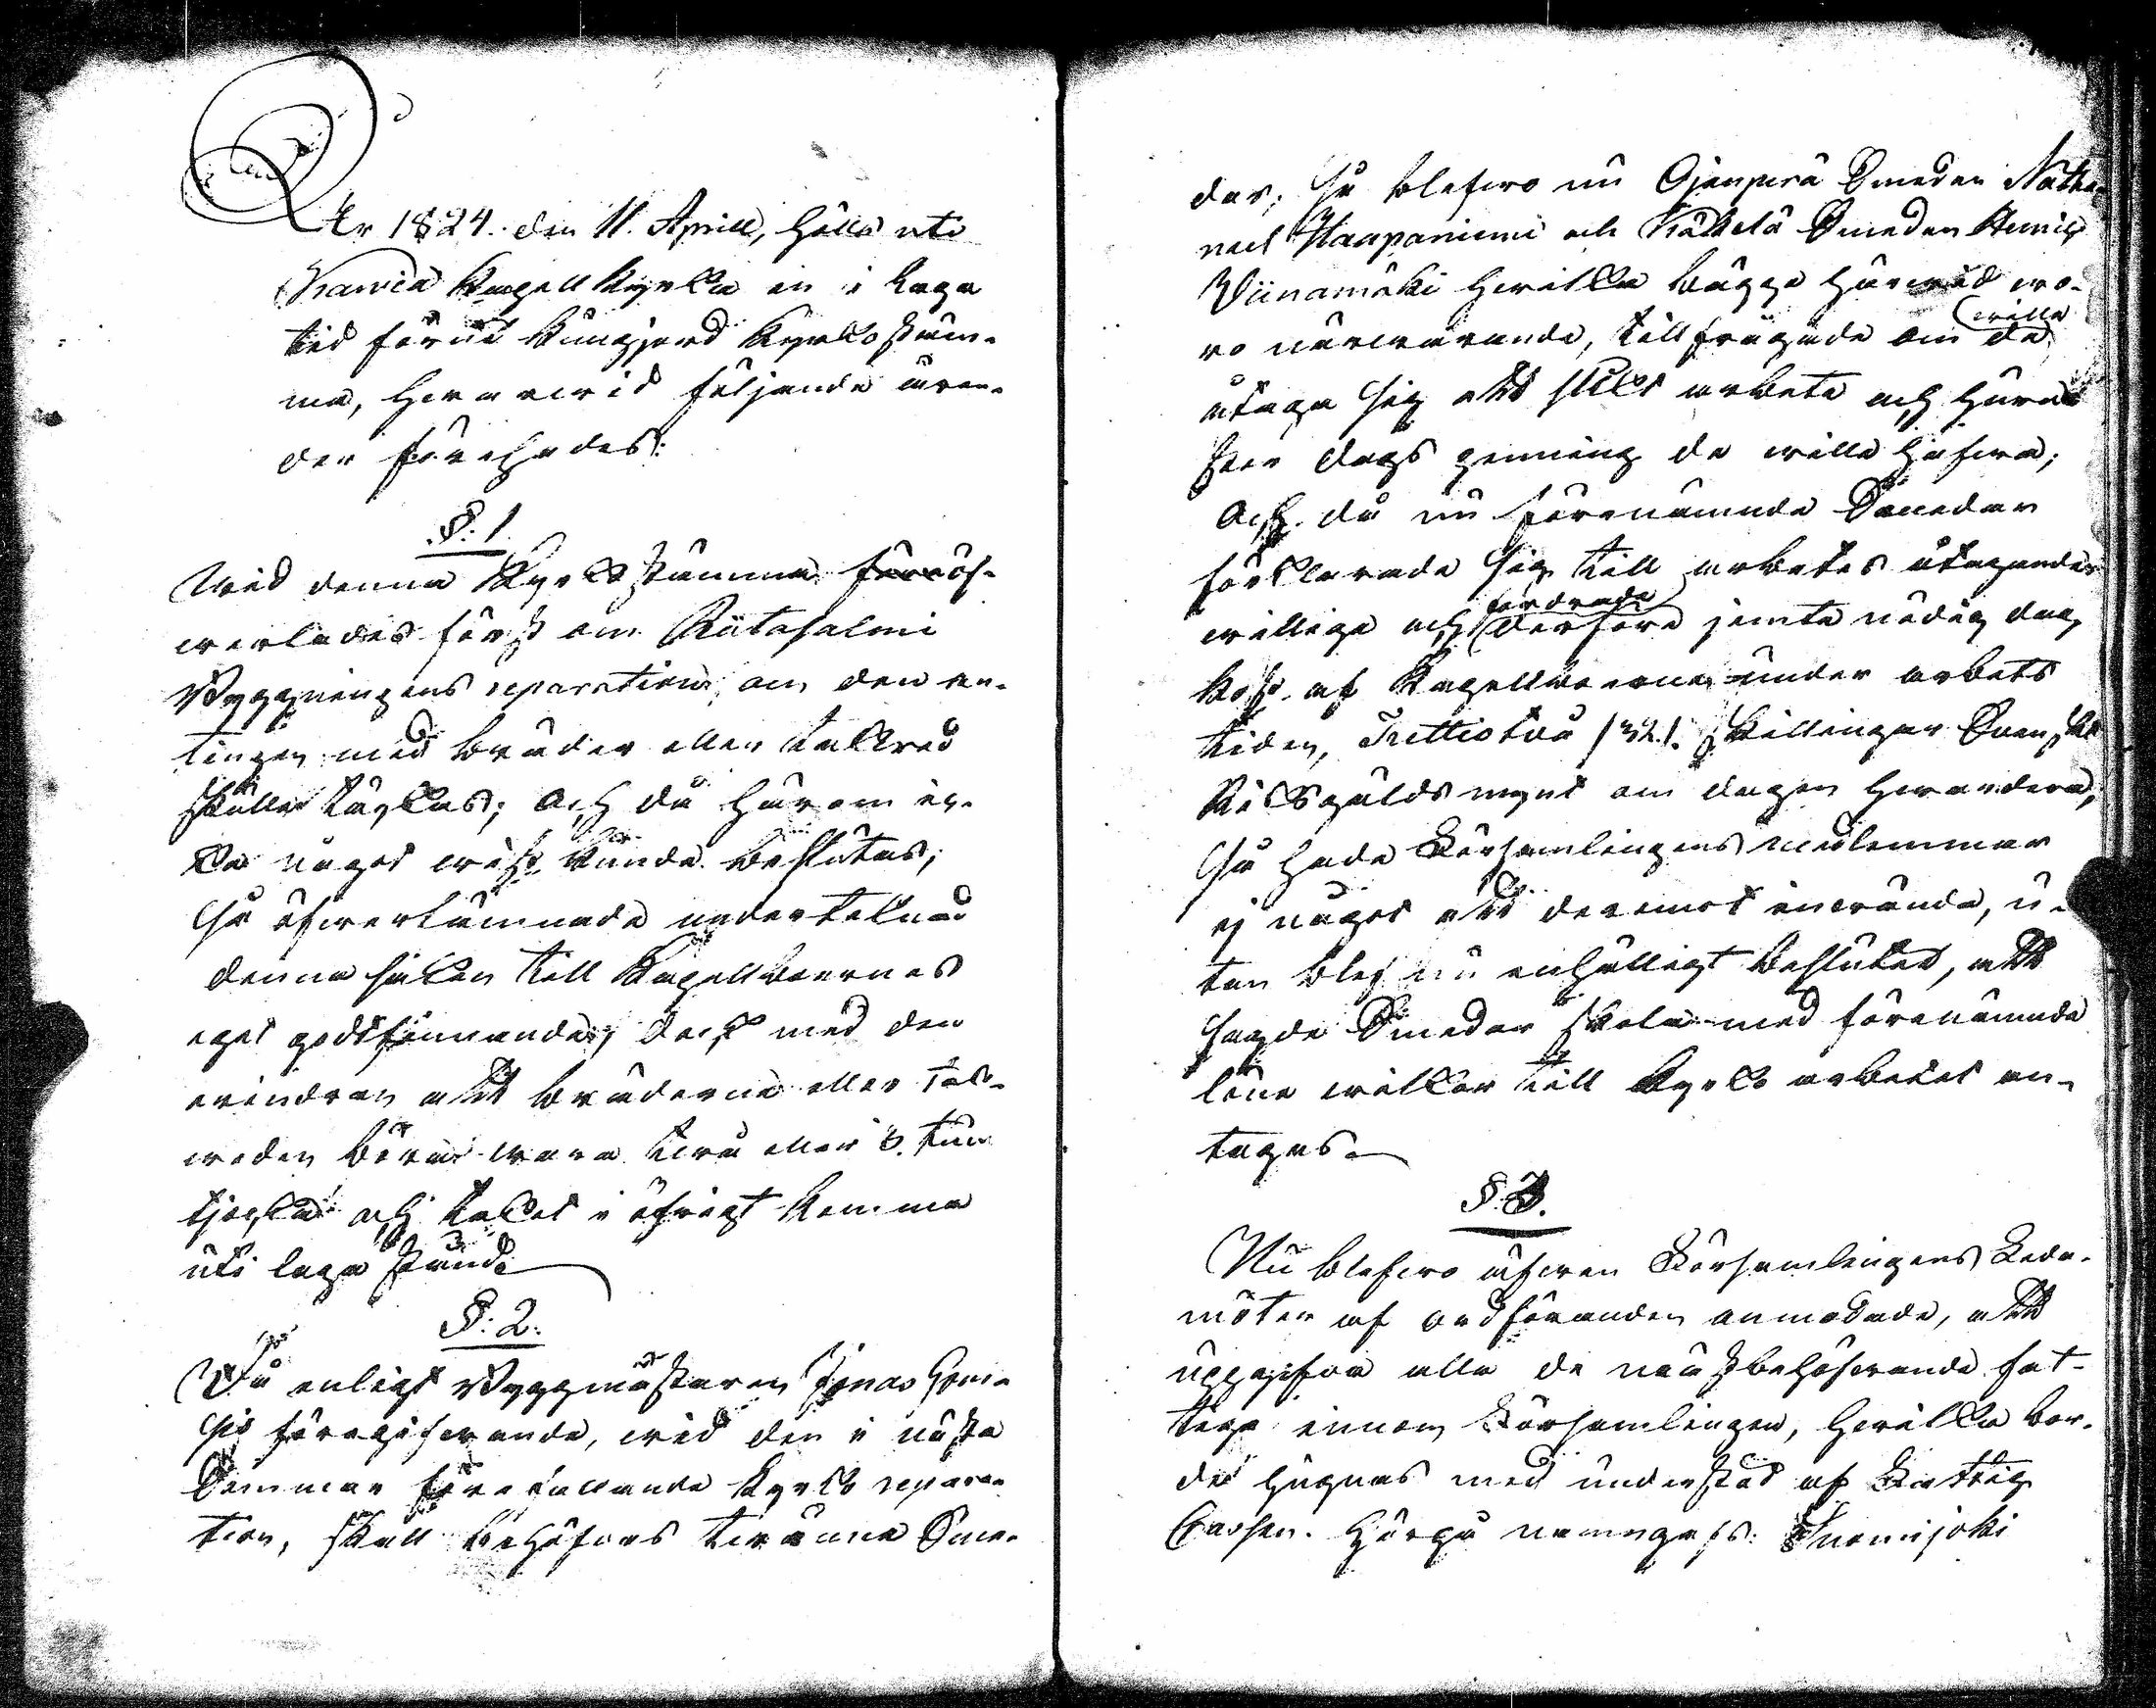 År 1824. den 11. Aprill, hölls uti
Karvia Kapell kyrka en i laga
tid förut kungjord Kyrkostäm-
ma, hvarvid följande ären-
der förehades:
§: 1.
Wid denna Kyrkostämma föröf-
werlades först om Riitasalmi
Byggningens reparation, om den an-
tingen med bräder eller takved
skulle täckas; och då härom ic-
ke något wisst kunde beslutas,
så öfwerlämnade undertecknad
denna saken till Kapellboernes
eget godtfinnande, dock med den
erindran att bräderna eller tak-
weden böra wara twå eller 3. tum
tjocka och taket i öfrigt komma
uti laga stånd.
§: 2.
Då enligt Byggmästaren Jonas
föregifwande, wid den i nästa
Sommar förefallande kyrko repara-
tion, skall behöfwas twänne Sme-
der; så blefwo nu Ojanperä Smeden Natha-
nael Haapaniemi och Käkelä Smeden Henric
Viinamäki hwilka bägge härwid wo-
ro närwarande, tillfrågade om de wille
åtaga sig ett slikt arbete och huru
stor dags penning de wille hafwa;
Och då nu förenämnde Smeder
förklarade sig till arbetes åtagande
willige och fordrade derföre jemte nödig dag
kost af Kapellboerne under arbets
tiden, Trettiotwå /32/. Skillingar Svenskt
Riksgälds mynt om dagen hwardera,
så hade Församlingens medlemmar
ej något att deremot inwända, u-
tan blef nu enhälligt beslutet, att
sagde Smeder skola med förenämnde
löne willkor till kyrko arbetet an-
tagas.
§: 3.
Nu blefwo äfwen Församlingens Leda-
möter af ordföranden anmodade, att
uppgifwa alla de mäst behöfwande fat-
tiga innom Församlingen, hwilka bor-
de hugnas med understöd af Fattig
Cassan. Härpå namngafs: Suomijoki